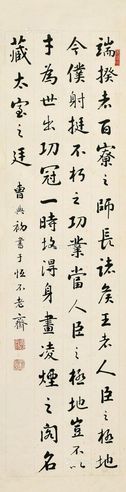 瑞揆者百寮之師長諸侯王者人臣之極地
今僕射挺不朽之功業當人臣之極地豈不以
才為世出功冠一時故得身畫凌煙之閣名
藏太室之廷
曹典初書于恒不老齋